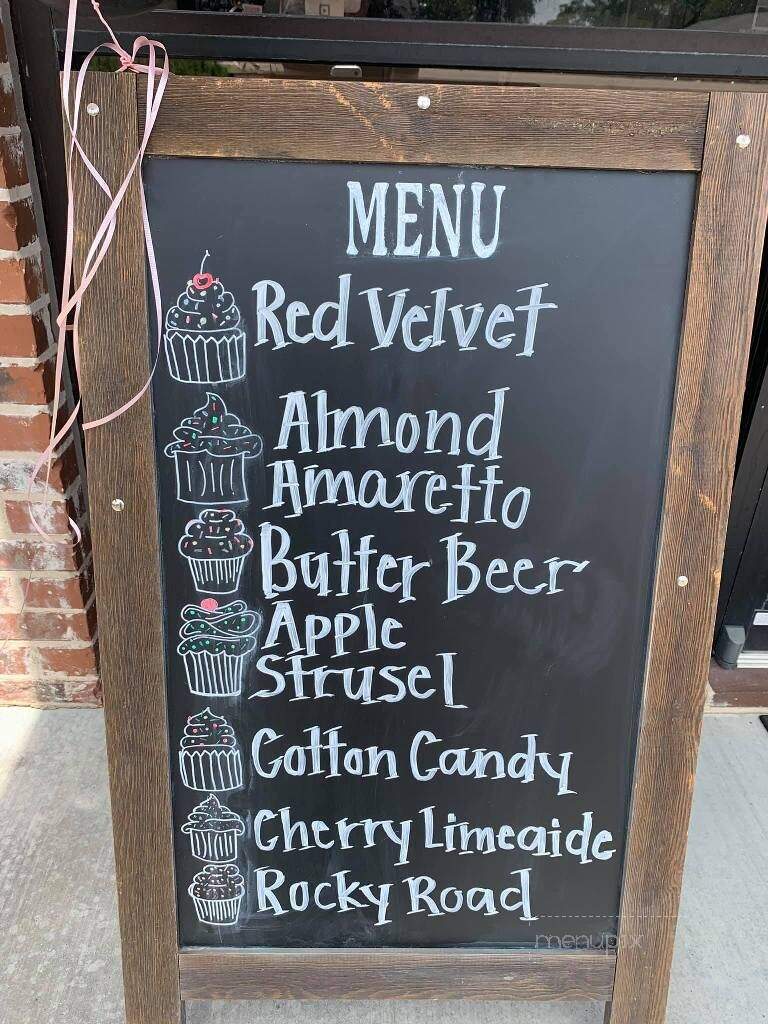 MENU
Red Velvet
Almond
Amaretto
Butter Beer
Apple
Strusel
Cotton Candy
Cherry Limeaide
Rocky Road
menupix